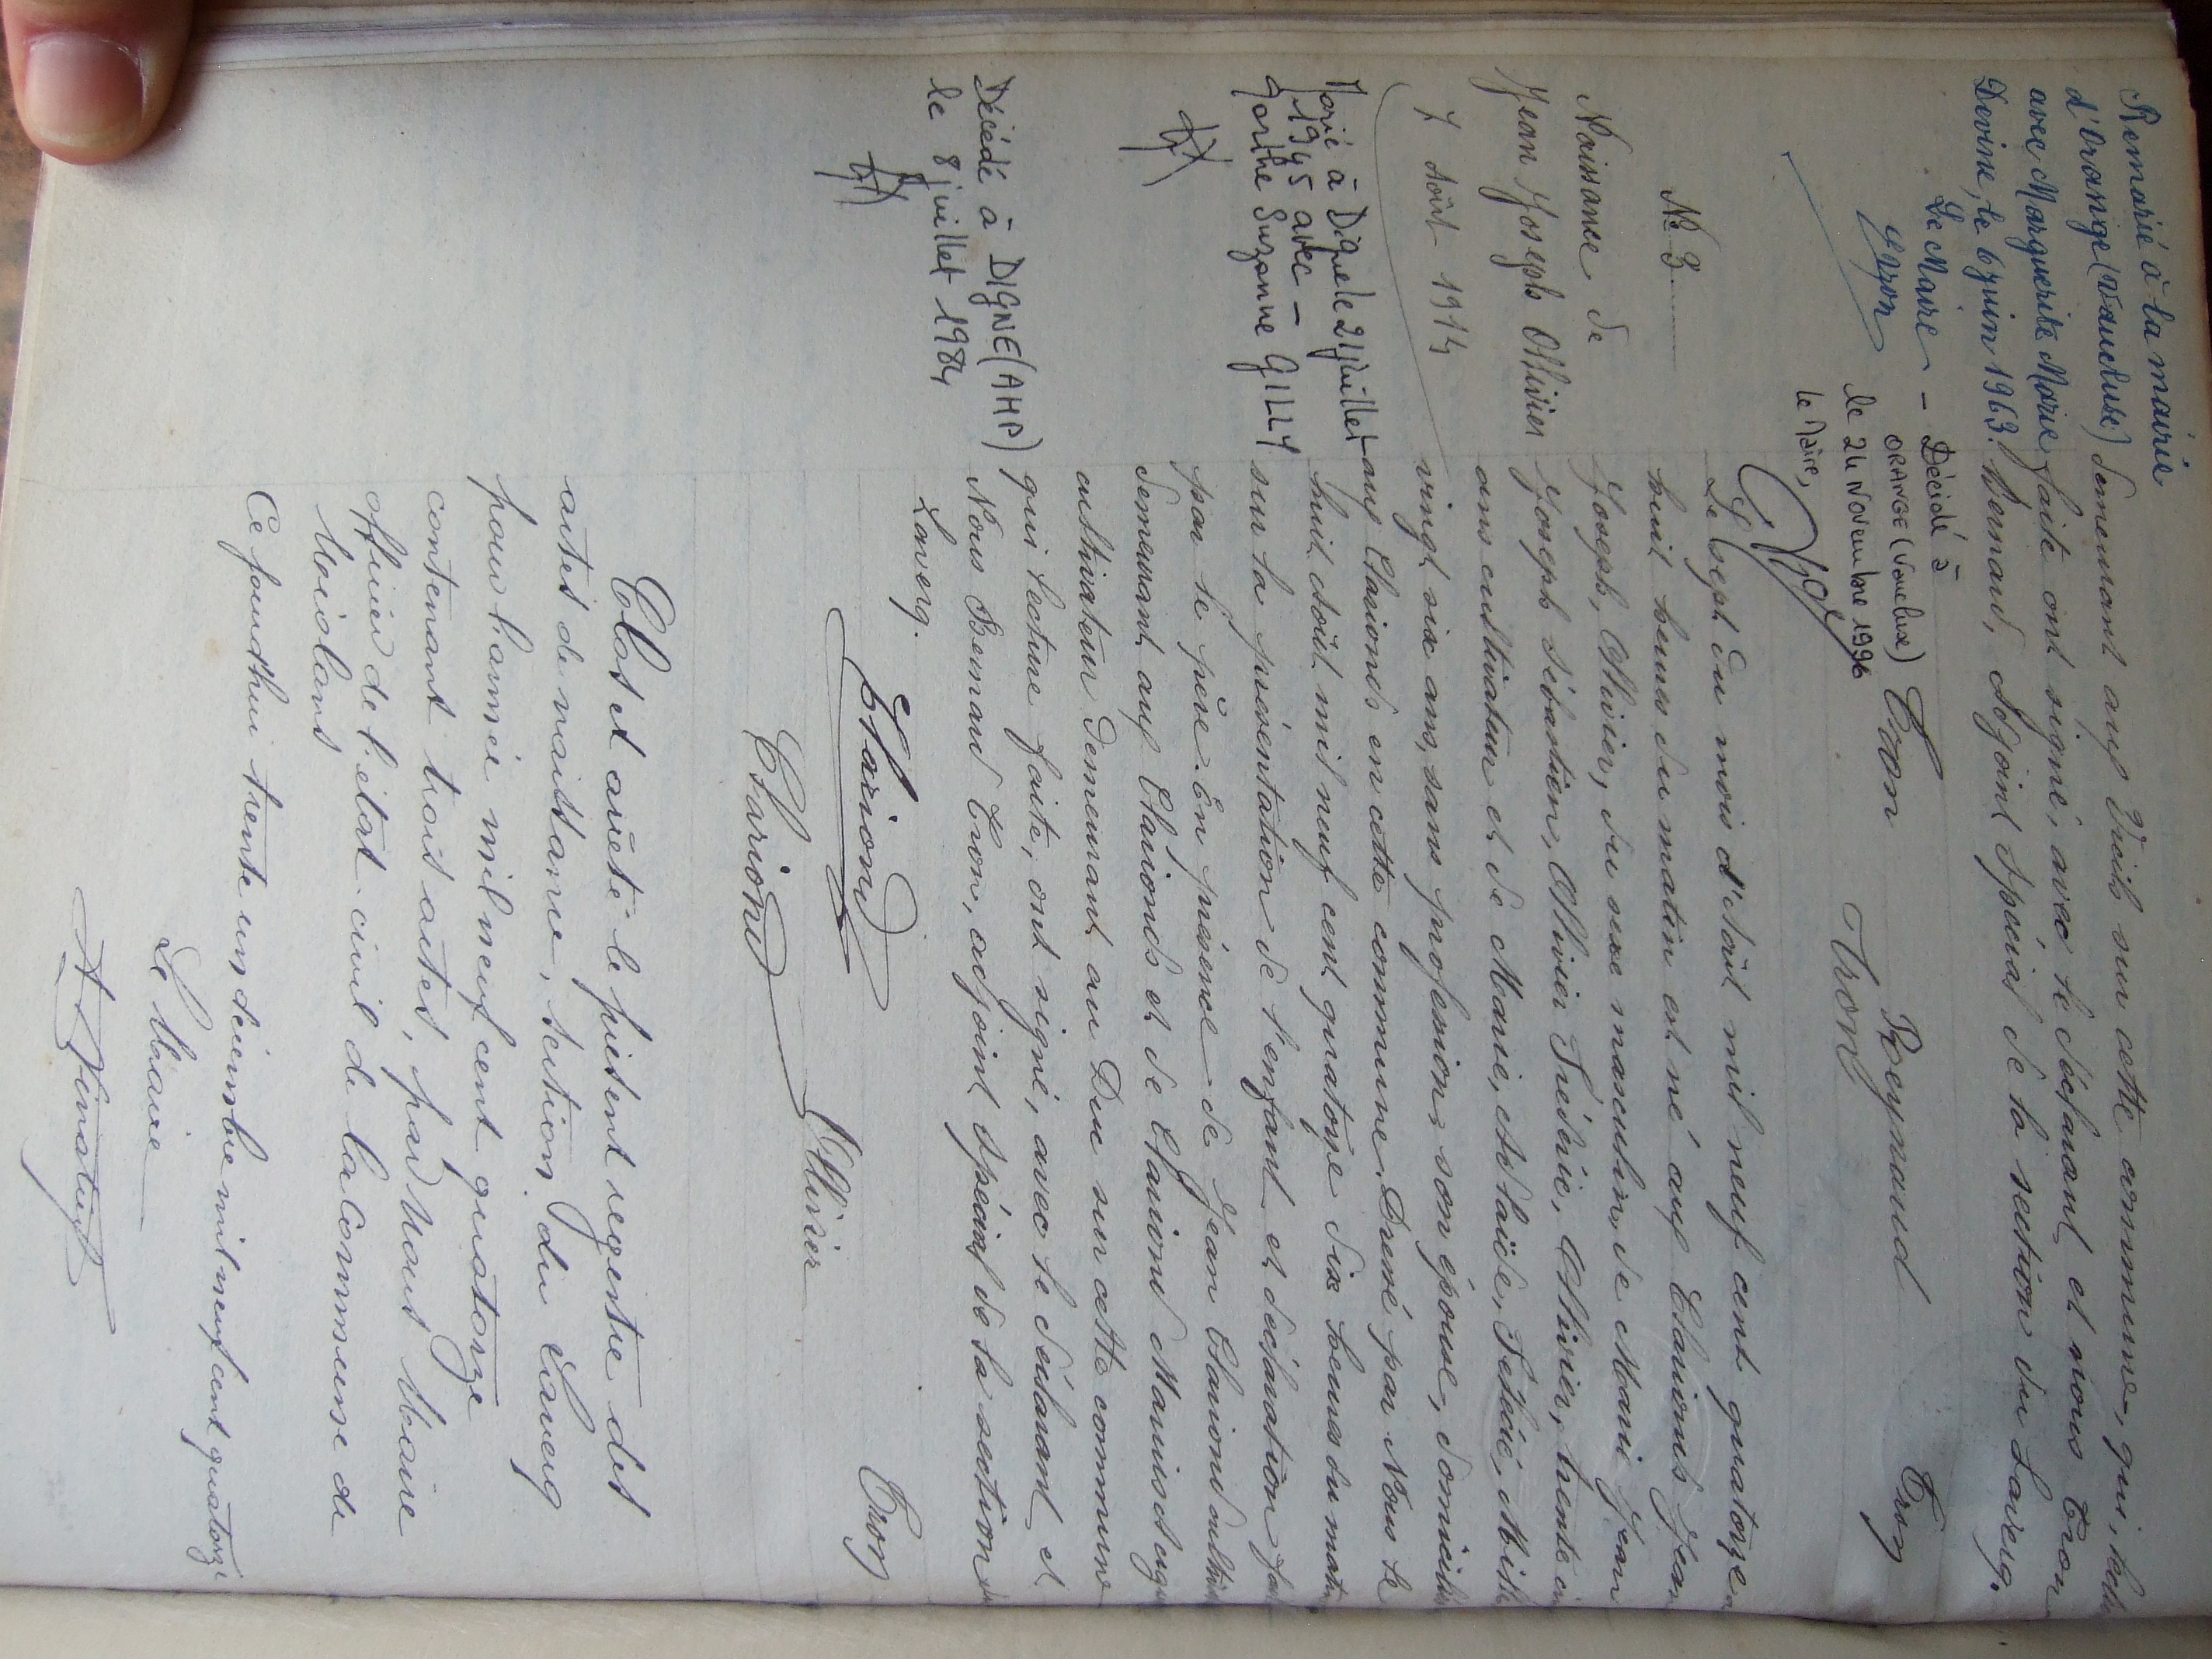 Remarié à la mairie
d'Orange (Vaucluse)
avec Marguerite Marie
Devine, le 6 juin 1963.
Le Maire
- Décédé à
ORANGE (Vaucluse)
le 24 Novembre 1996
le Maire,
demeurant aux Viols sur cette commune, qui,
faite ont signé, avec le déclarant et nous Eron
Bernard, Adjoint spécial de la section du Laverq.
Eron Reynaud
Tron Eron
N° 3
Naissance de
Jean Joseph Ollivier
7 Août 1914
Marié à Digne le 21 juillet
1945 avec -
Marthe Suzanne GILLY
Décédé à DIGNE (AHP)
le 8 juillet 1984
Le sept du mois d'Août mil neuf cent quatorze
huit heures du matin est né aux Clarionds Jean
Joseph, Ollivier, du sexe masculin, de Marie Jean
Joseph Sébastien, Ollivier Frédéric, Ollivier, trente
ans cultivateur et de Marie, Adélaïde, Félicie,
vingt six ans, sans profession, son épouse, domiciliés
aux Clarionds en cette commune. Dressé par Nous le
huit Août mil neuf cent quatorze dix heures du matin
sur la présentation de l'enfant et déclaration faite
par le père. En présence de Jean Clariond
demeurant aux Clarionds et de Clariond
cultivateur demeurant au Duu sur cette commune
qui lecture faite, ont signé, avec le déclarant et
Nous Bernard Eron, adjoint spécial de la section du
Laverq.
Clariond Eron
Clariond Ollivier
Clos et arrêté le présent registre des
actes de naissance, section du Laverq
pour l'année mil neuf cent quatorze
contenant trois actes, par Nous Maire
officier de l'état-civil de la Commune de
Méolans
Ce jourd'hui trente un décembre mil neuf cent quatorze
Le Maire